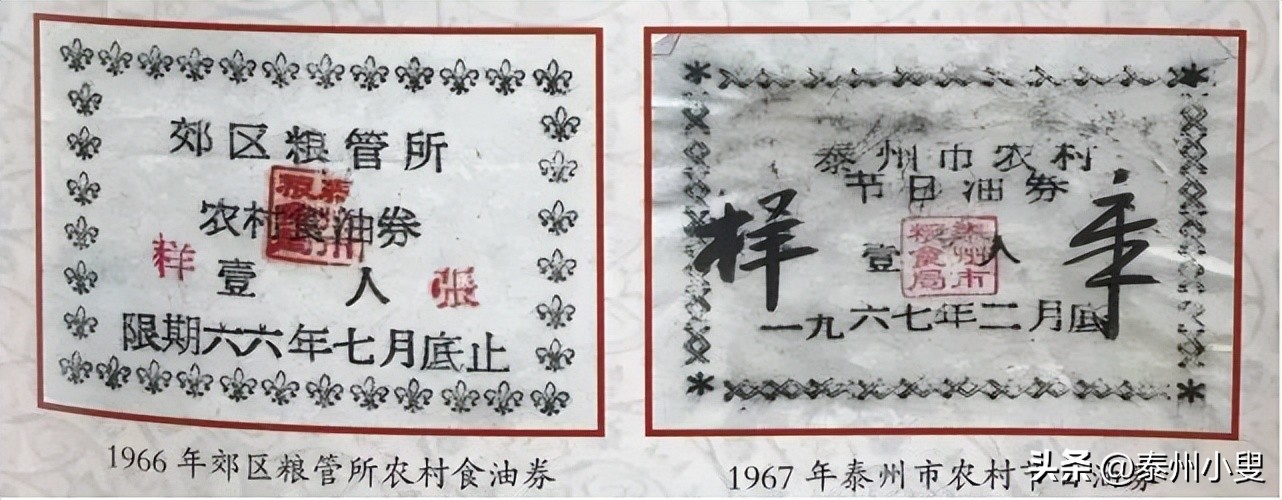 郊区粮管所
农村食油券
样 壹人 張
限期六六年七月底止
1966年郊区粮管所农村食油券
泰州市农村
节日油券
样
壹人
泰州市
粮食局
一九六七年二月底
1967年泰州市农村节日油券
头条@泰州小叟